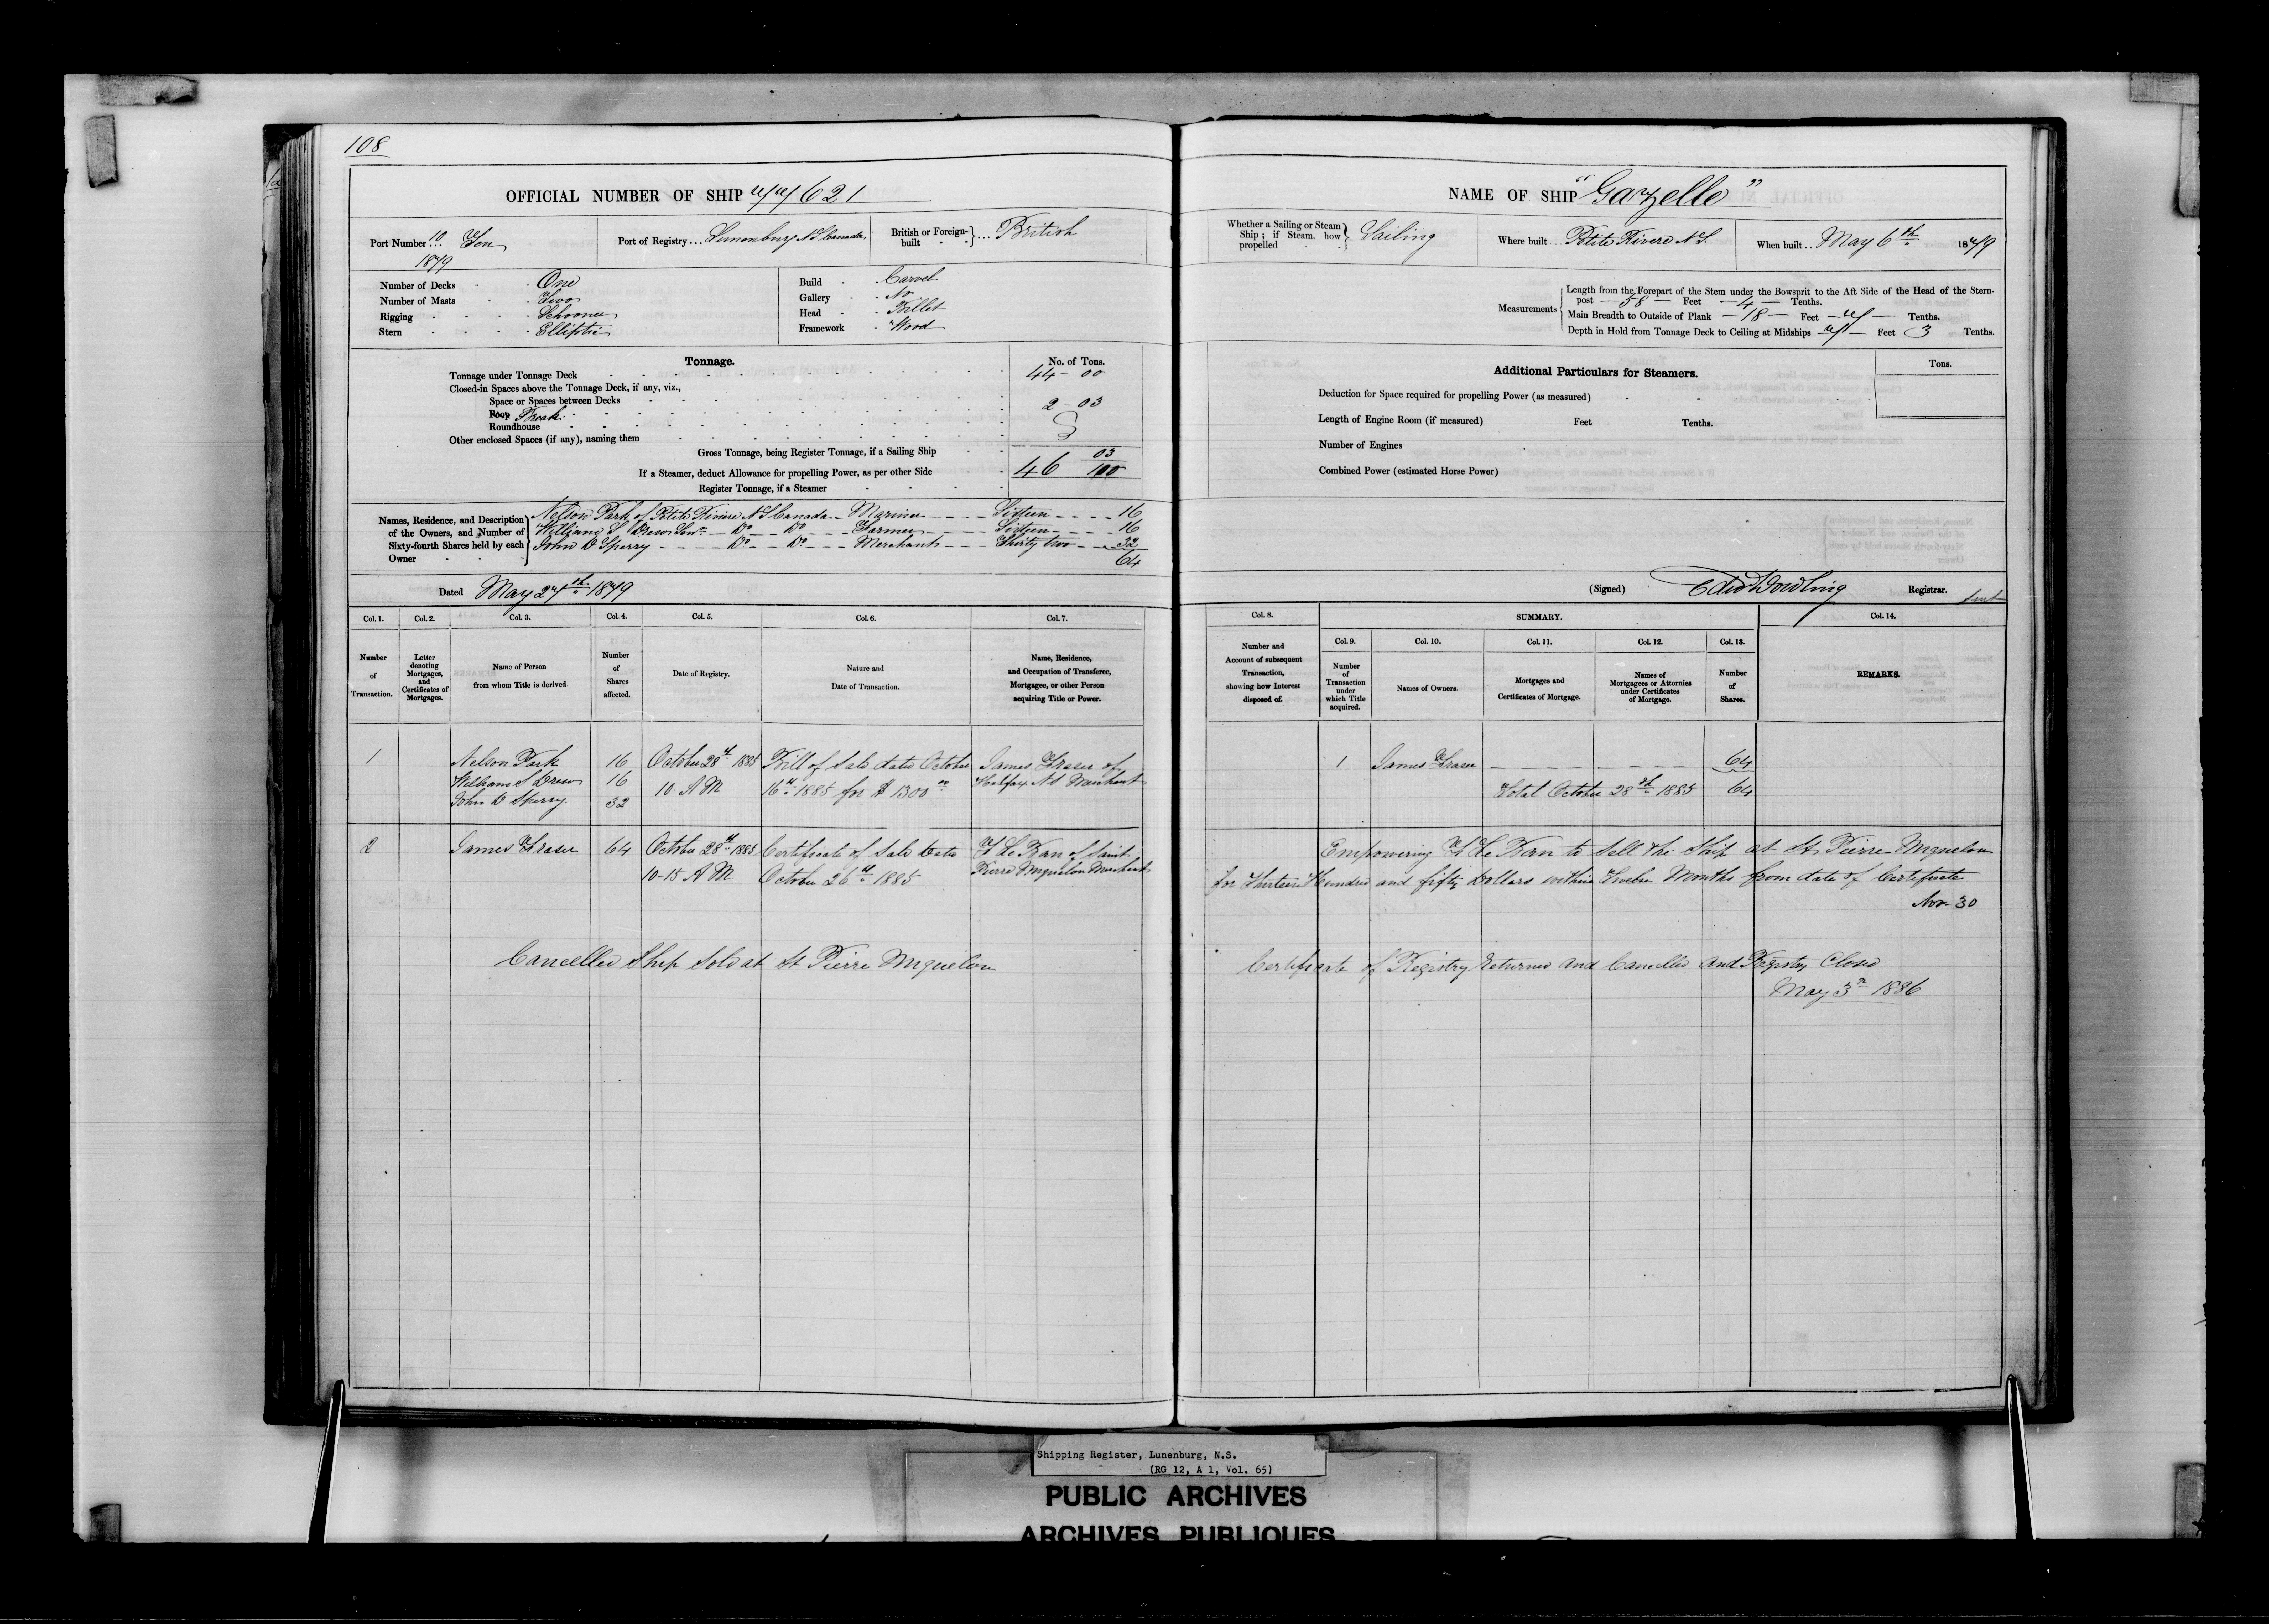 108
OFFICIAL NUMBER OF SHIP 77621
Port Number 10 Ten
1879
Port of Registry... Lunenburg N.S Canada
British or Foreign-built }... British
Number of Decks - - One
Number of Masts - - Two
Rigging - - - - Schooner
Stern - - - - Elliptic
Build - Carvel
Gallery - No
Head - Billet
Framework - Wood
Tonnage.
No. of Tons.
Tonnage under Tonnage Deck 44 - 00
Closed-in Spaces above the Tonnage Deck, if any, viz.,
Space or Spaces between Decks
Poop Break 2 - 03
Roundhouse
Other enclosed Spaces (if any), naming them
Gross Tonnage, being Register Tonnage, if a Sailing Ship
If a Steamer, deduct Allowance for propelling Power, as per other Side 46 03/100
Register Tonnage, if a Steamer
Names, Residence, and Description of the Owners, and Number of Sixty-fourth Shares held by each Owner
Nelson Park of Petite Riviere N S Canada - Mariner - - - Sixteen - - - - 16
William S Drew Senr. - Do - Do - - - Farmer - - - Sixteen - - - - 16
John D Sperry - - - - Do - - Do - - - Merchant - - - Thirty two - - 32
64
Dated May 27th 1879
Col. 1. Col. 2. Col. 3. Col. 4. Col. 5. Col. 6. Col. 7.
Number of Transaction.
Letter denoting Mortgages, and Certificates of Mortgages.
Name of Person from whom Title is derived.
Number of Shares affected.
Date of Registry.
Nature and Date of Transaction.
Name, Residence, and Occupation of Transferee, Mortgagee, or other Person acquiring Title or Power.
1 Nelson Park 16 October 28th 1885 Bill of Sale dated October James Fraser of
William S Drew 16 10 A M 16th 1885 for $ 1300 00 Halifax N S Merchant
John D Sperry 32
2 James Fraser 64 October 28th 1885 Certificate of Sale dated F Le Ban of Saint
10-15 A M October 26th 1885 Pierre Miquelon Merchant
Cancelled Ship Sold at St Pierre Miquelon
NAME OF SHIP "Gazelle"
Whether a Sailing or Steam Ship; if Steam, how propelled } Sailing
Where built... Petite Riviere N.S.
When built... May 6th 1879
Measurements
Length from the Forepart of the Stem under the Bowsprit to the Aft Side of the Head of the Stern-
post - 58 - Feet - 4 - Tenths.
Main Breadth to Outside of Plank - 18 - Feet - 7 - Tenths.
Depth in Hold from Tonnage Deck to Ceiling at Midships - 7 - Feet 3 Tenths.
Additional Particulars for Steamers.
Tons.
Deduction for Space required for propelling Power (as measured)
Length of Engine Room (if measured) Feet Tenths.
Number of Engines
Combined Power (estimated Horse Power)
(Signed) Edwd Dowling Registrar.
Col. 8. SUMMARY. Col. 14.
Col. 9. Col. 10. Col. 11. Col. 12. Col. 13.
Number and Account of subsequent Transaction, showing how Interest disposed of.
Number of Transaction under which Title acquired.
Names of Owners.
Mortgages and Certificates of Mortgage.
Names of Mortgagees or Attornies under Certificates of Mortgage.
Number of Shares.
REMARKS.
1 James Fraser - - - - - - - 64
Total October 28th 1885 64
Empowering F Le Ban to Sell the Ship at St Pierre Miquelon
for Thirteen Hundred and fifty Dollars within Twelve Months from date of Certificate
Nov- 30
Certificate of Registry Returned and Cancelled and Registry Closed
May 3rd 1886
Shipping Register, Lunenburg, N.S.
(RG 12, A 1, Vol. 65)
PUBLIC ARCHIVES
ARCHIVES PUBLIQUES